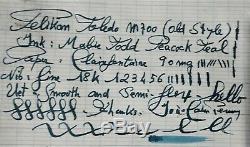 Pelikan Toledo M700 (old Style)
Ink: Mabie Todd Peacock Teal
Paper: Clairefontaine 90mg
Nib: fine 18k 123456
Wet Smooth and Semi-flex hello
Thanks.